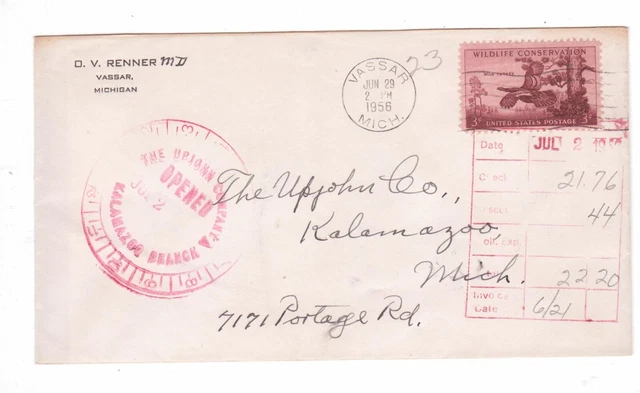 D. V. RENNER MD
VASSAR,
MICHIGAN
VASSAR
JUN 29
2 PM
1956
MICH.
23
WILDLIFE CONSERVATION
WILD TURKEY
3¢ UNITED STATES POSTAGE 3¢
THE UPJOHN COMPANY
OPENED
JUL 2
KALAMAZOO BRANCH
Date JUL 2
Check 21.76
44
22 20
Invoice
Date 6/21
The Upjohn Co.,
Kalamazoo,
Mich.
7171 Portage Rd.